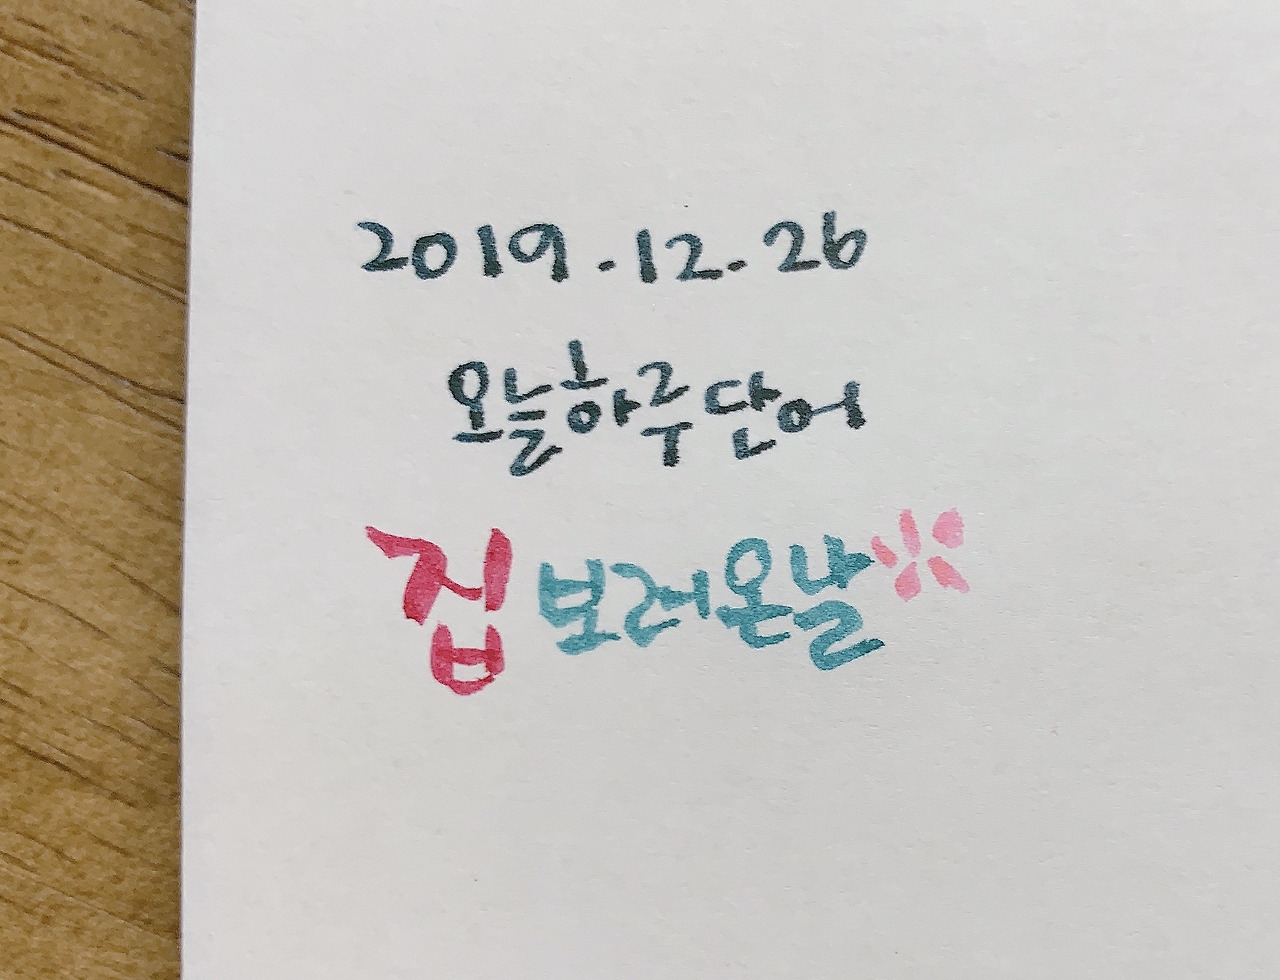 2019.12.26
오늘하루단어
집보러온날